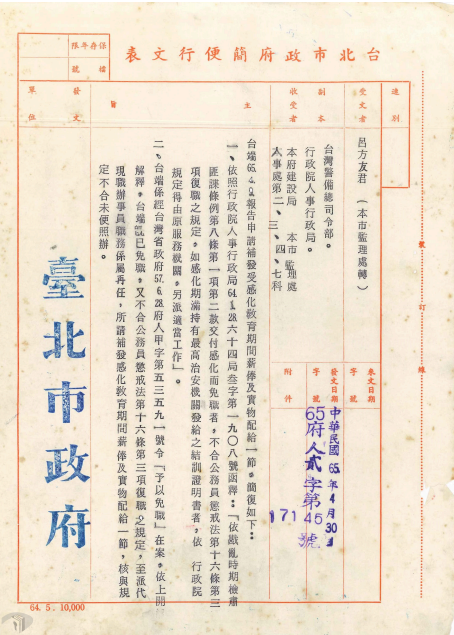 台北市政府簡便行文表
保存年限
檔號
速別
受文者
呂方友君（本市監理處轉）
副本收受者
台灣警備總司令部。
行政院人事行政局。
本府建設局 本市監理處
人事處第二、三、四、七科
來文日期
字號
發文日期
字號
中華民國65年4月30日
65府人貳字第
17145號
附件
發文單位
主旨
台端65.4.9.報告申請補發受感化教育期間薪俸及實物配給一節，簡復如下：
一、依照行政院人事行政局64.1.28.六十四局叁字第一九〇八號函釋：「依戡亂時期檢肅
匪諜條例第八條第一項第二款交付感化而免職者，不合公務員懲戒法第十六條第三
項復職之規定，如感化期滿持有最高治安機關發給之結訓證明書者，依 行政院
規定得由原服務機關，另派適當工作」。
二、台端係經台灣省政府57.6.28.府人甲字第五三五九一號令「予以免職」在案，依上開
解釋，台端既已免職，又不合公務員懲戒法第十六條第三項復職之規定，至派代
現職辦事員職務係屬再任，所請補發感化教育期間薪俸及實物配給一節，核與規
定不合未便照辦。
臺北市政府
裝訂線
64.5.10,000